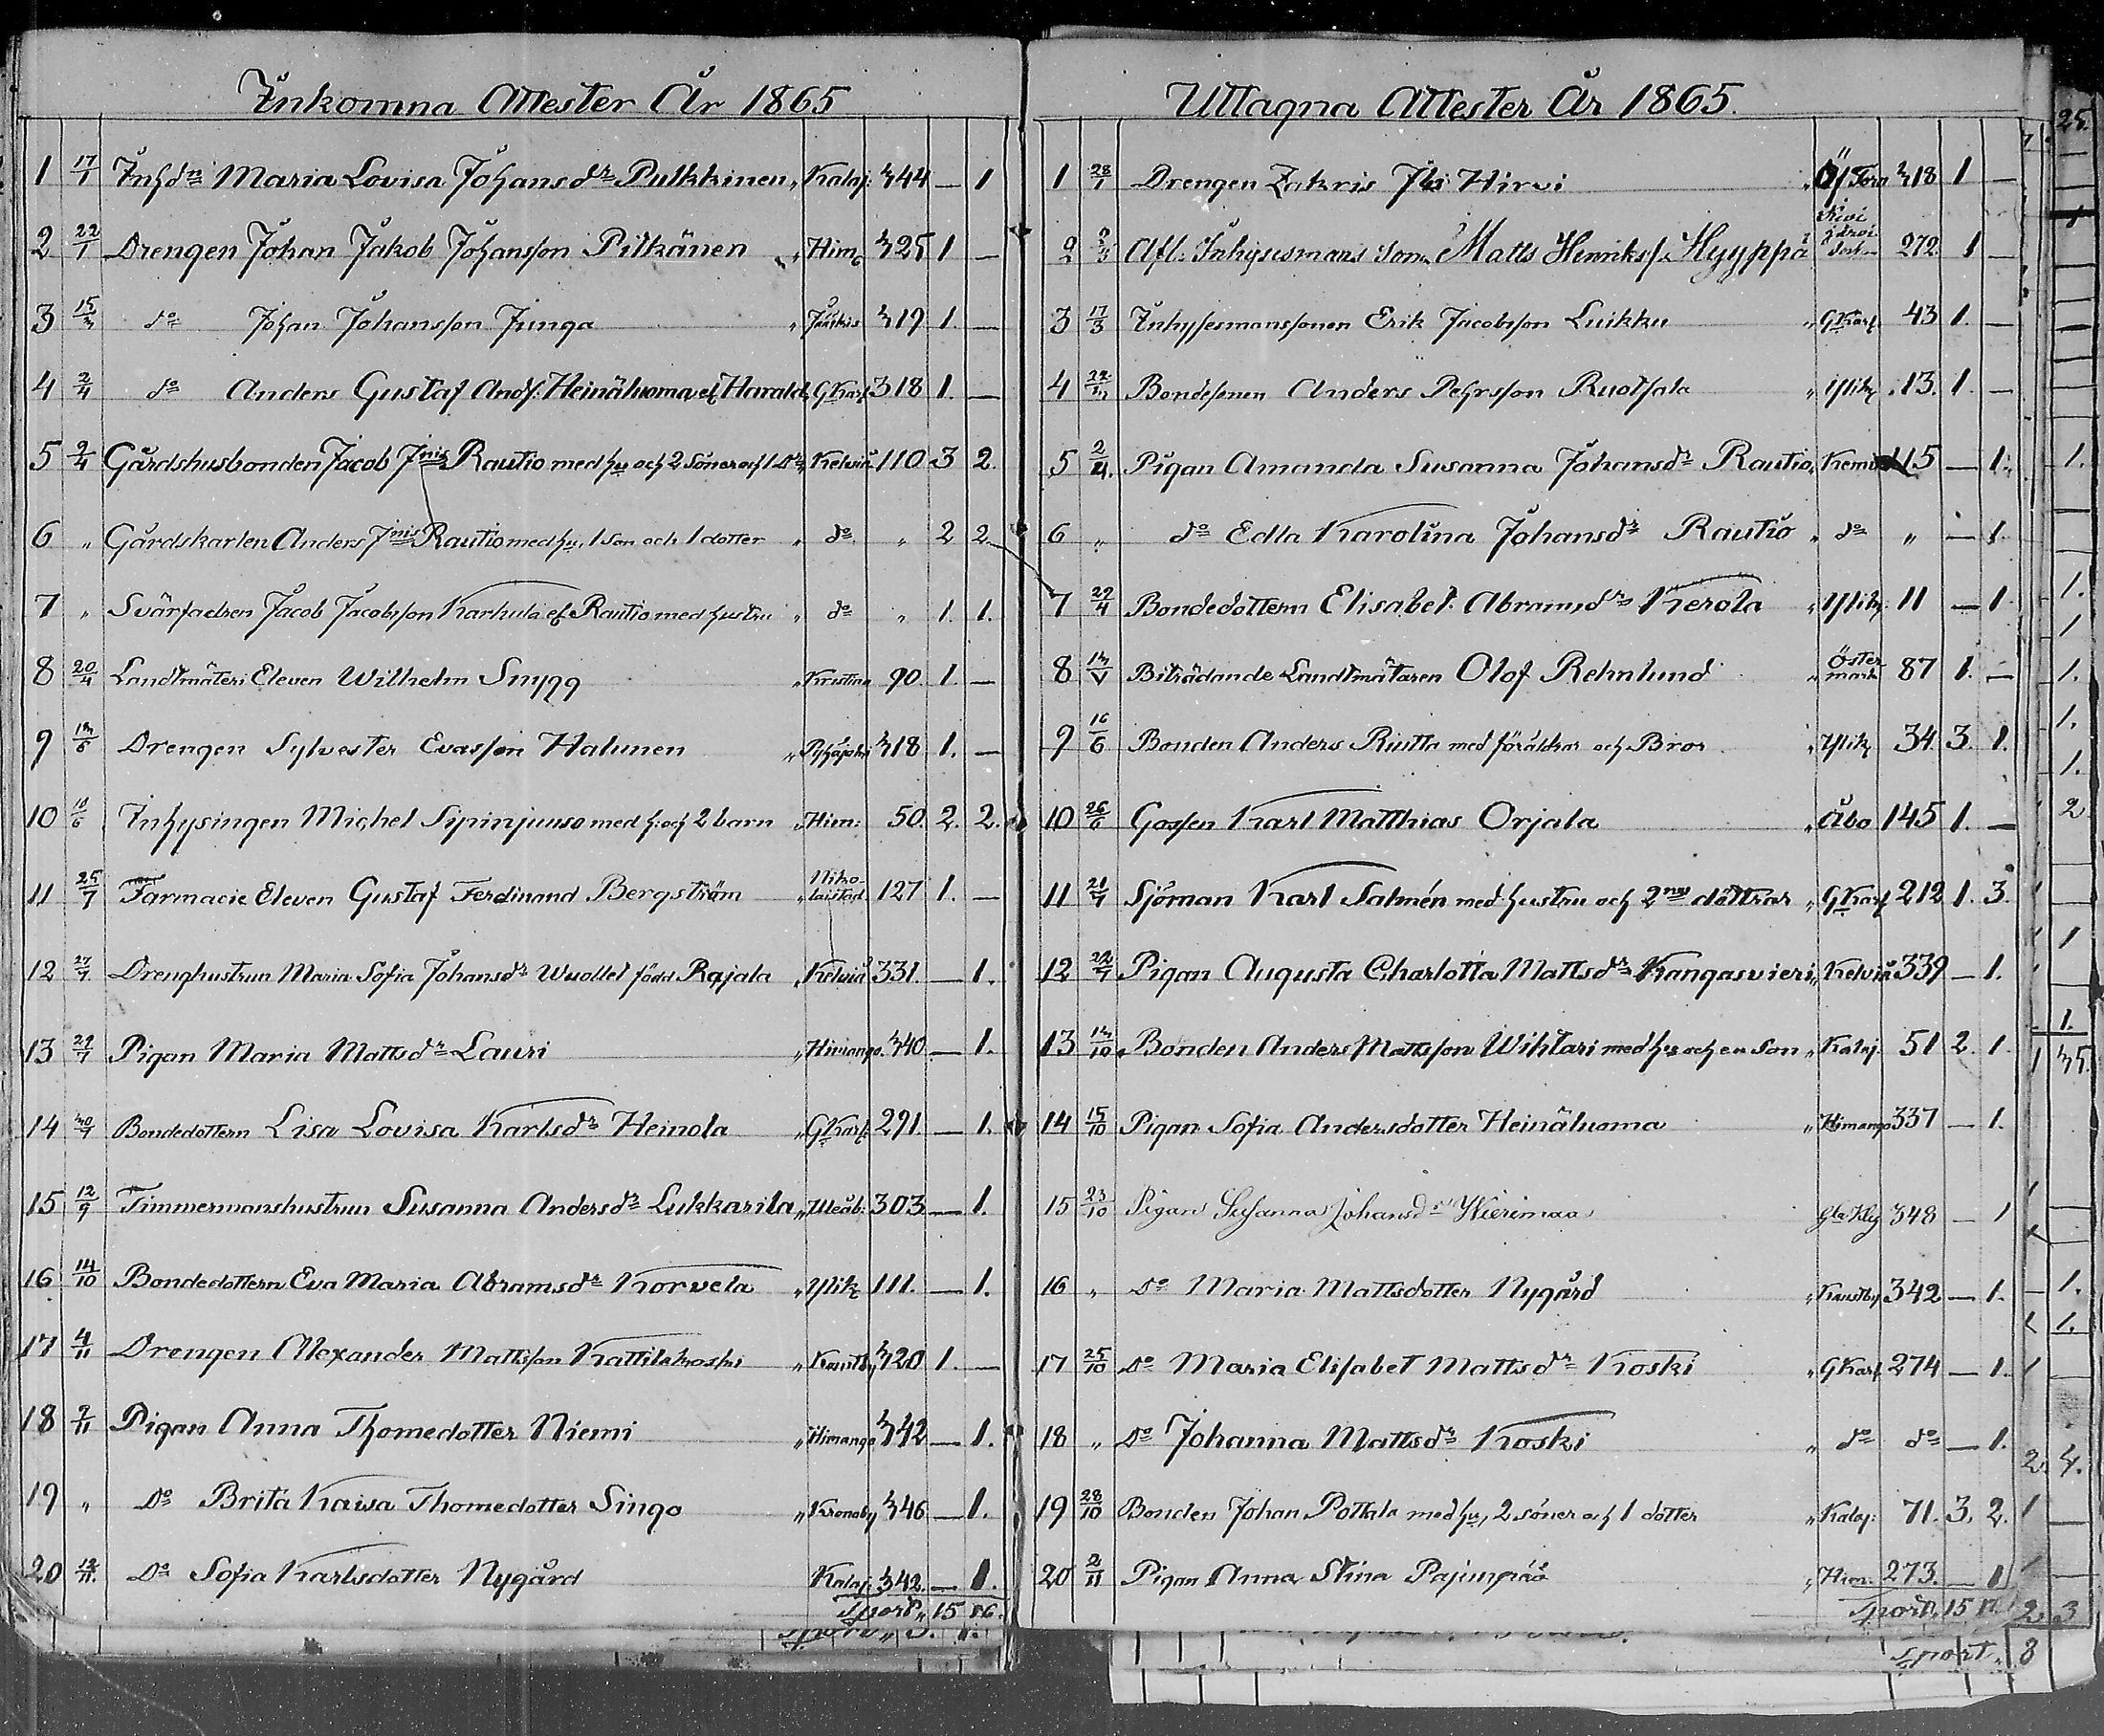 Inkomna Attester År 1865
1 17/1 Inhdrn Maria Lovisa Johansdr Pulkkinen „ Kalaj: 344 — 1
2 22/1 Drengen Johan Jakob Johansson Pitkänen „ Him. 325 1 —
3 15/3 do Johan Johansson Junga „ 319 1. —
4 2/4 do Anders Gustaf Andʃ. Heinäluoma el Harald „ GKarl. 318 1. —
5 2/4 Gårdshusbonden Jacob Jnis Rautio med hu och 2 söner och 1 Dr „ Kelviå 110 3 2.
6 „ Gårdskarlen Anders Jnis Rautio med hu, 1 son och 1 dotter „ do „ 2 2
7 „ Svärfadren Jacob Jacobsson Karhula el Rautio med hustru „ do „ 1. 1.
8 20/4 Landtmäteri Eleven Wilhelm Snygg „ Kristina 90. 1. —
9 13/6 Drengen Sylvester Evasson Halunen „ Pyhäjoki 318 1. —
10 18/6 Inhysingen Michel Sipinjunso med h. och 2 barn „ Him: 50. 2. 2.
11 25/7 Farmacie Eleven Gustaf Ferdinand Bergström „ Nikolaistad 127 1. —
12 27/7 Drenghustrun Maria Sofia Johansdr Wuollet född Rajala „ Kelviå 331. — 1.
13 29/7 Pigan Maria Mattsdr Lauri „ Himango. 340 — 1.
14 30/7 Bondedottern Lisa Lovisa Karlsdr Heinola „ GKarl. 291 — 1.
15 12/9 Timmermanshustrun Susanna Andersdr Lukkarila „ Uleåb: 303 — 1.
16 14/10 Bondedottern Eva Maria Abramsdr Korvela „ Ylik 111. — 1.
17 4/11 Drengen Alexander Mattsson Kattilakoski „ Kaustby 320 1. —
18 9/11 Pigan Anna Thomedotter Niemi „ Himango 342 — 1.
19 „ Do Brita Kaisa Thomedotter Singo „ Kronoby 346 — 1.
20 /11. Do Sofia Karlsdotter Nygård Kalaj: 342. — 1.
Sport „ 15 16.
Uttagna Attester År 1865.
1 28/1 Drengen Zakris Hirvi „ 318 1 —
2 2/3 Afl: Inhysesmans Son Matts Henriksʃ. Hyyppä „ Kivijärvi 272. 1 —
3 17/3 Inhysesmanssonen Erik Jacobsson Luikku „ GKarl. 43 1. —
4 22/3 Bondesonen Anders Pehrsson Ruotsala „ Ylik „ 13. 1. —
5 2/4. Pigan Amanda Susanna Johansdr Rautio „ 115 — 1.
6 „ do Edla Karolina Johansdr Rautio „ do „ — 1.
7 29/4 Bondedottern Elisabet Abramsdr Kerola „ Ylik. 11 — 1.
8 13/V Biträdande Landtmätaren Olof Rehnlund „ Östermark 87 1. —
9 16/6 Bonden Anders Riutta med föräldrar och Bror „ Ylik 34. 3. 1.
10 26/6 Gossen Karl Matthias Orjala „ Åbo 145 1. —
11 21/7 Sjöman Karl Salmén med hustru och 2ne döttrar „ GKarl 212 1. 3.
12 22/7 Pigan Augusta Charlotta Mattsdr Kangasvieri „ Kelviå 339 — 1.
13 13/10 Bonden Anders Mattsson Wihtari med hu och en Son „ Kalaj. 51 2. 1.
14 15/10 Pigan Sofia Andersdotter Heinäluoma „ Himango 337 — 1.
15 23/10 Pigan Susanna Johansdr Wierimaa Gla Kby 348 — 1
16 „ Do Maria Mattsdotter Nygård „ Kaustby 342 — 1.
17 25/10 Do Maria Elisabet Mattsdr Koski „ GKarl. 274 — 1.
18 „ Do Johanna Mattsdr Koski „ do do — 1.
19 28/10 Bonden Johan Pottala med hu, 2 söner och 1 dotter „ Kalaj: 71. 3. 2.
20 2/11 Pigan Anna Stina Pajunpää „ Him. 273. — 1
Sport „ 15
Sport „ 8